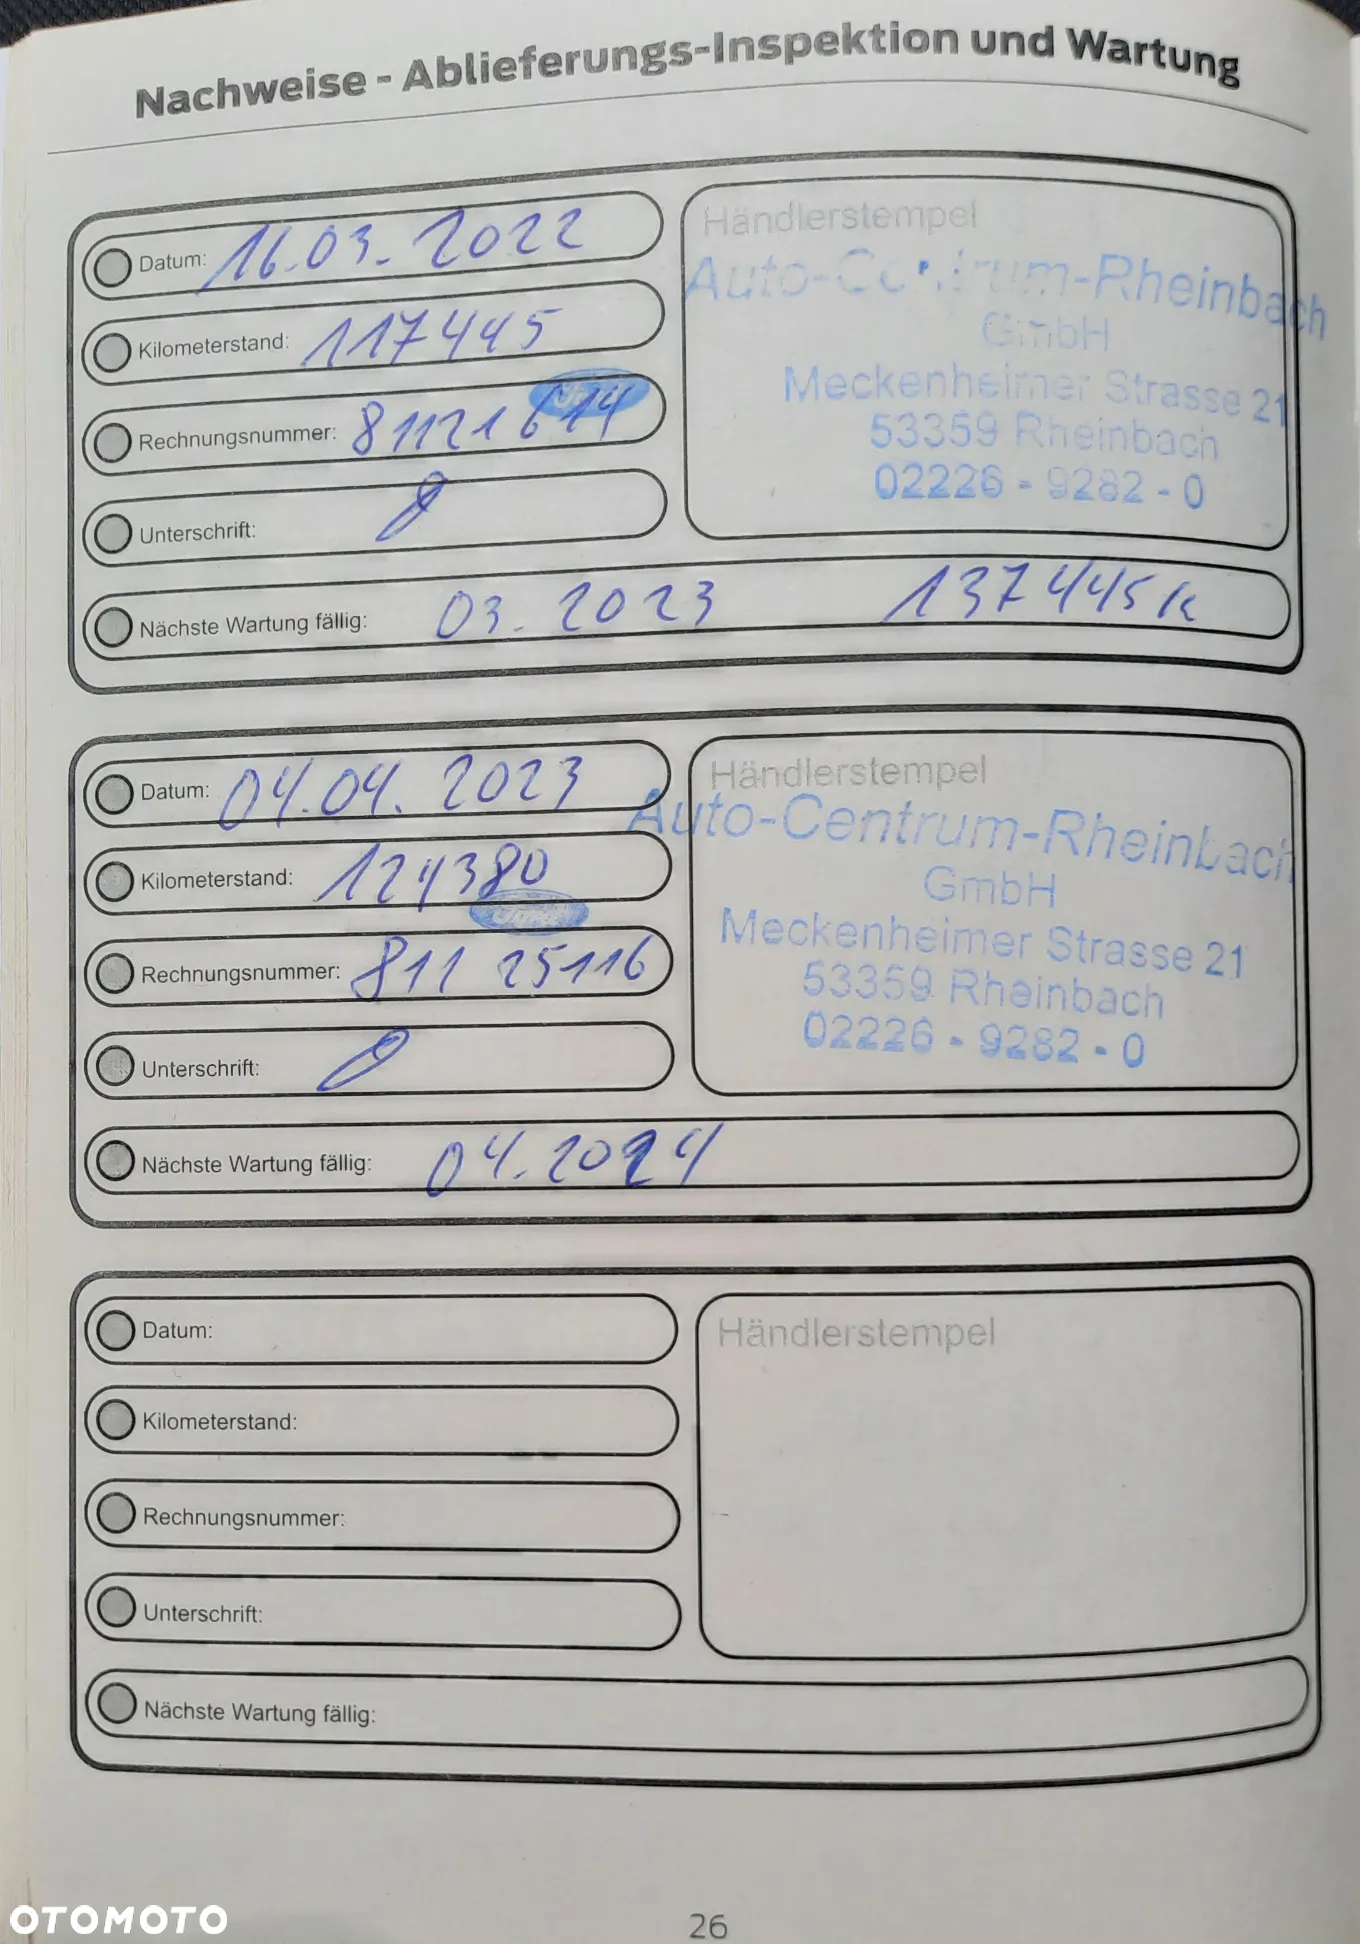 Nachweise - Ablieferungs-Inspektion und Wartung
Datum: 16.03.2022
Kilometerstand: 117445
Rechnungsnummer: 81121614
Unterschrift:
Nächste Wartung fällig: 03.2023 137445 k
Händlerstempel
Auto-Centrum-Rheinbach
GmbH
Meckenheimer Strasse 21
53359 Rheinbach
02226 - 9282 - 0
Datum: 04.04.2023
Kilometerstand: 124380
Rechnungsnummer: 811 25116
Unterschrift:
Nächste Wartung fällig: 04.2024
Händlerstempel
Auto-Centrum-Rheinbach
GmbH
Meckenheimer Strasse 21
53359 Rheinbach
02226 - 9282 - 0
Datum:
Kilometerstand:
Rechnungsnummer:
Unterschrift:
Nächste Wartung fällig:
Händlerstempel
OTOMOTO
26